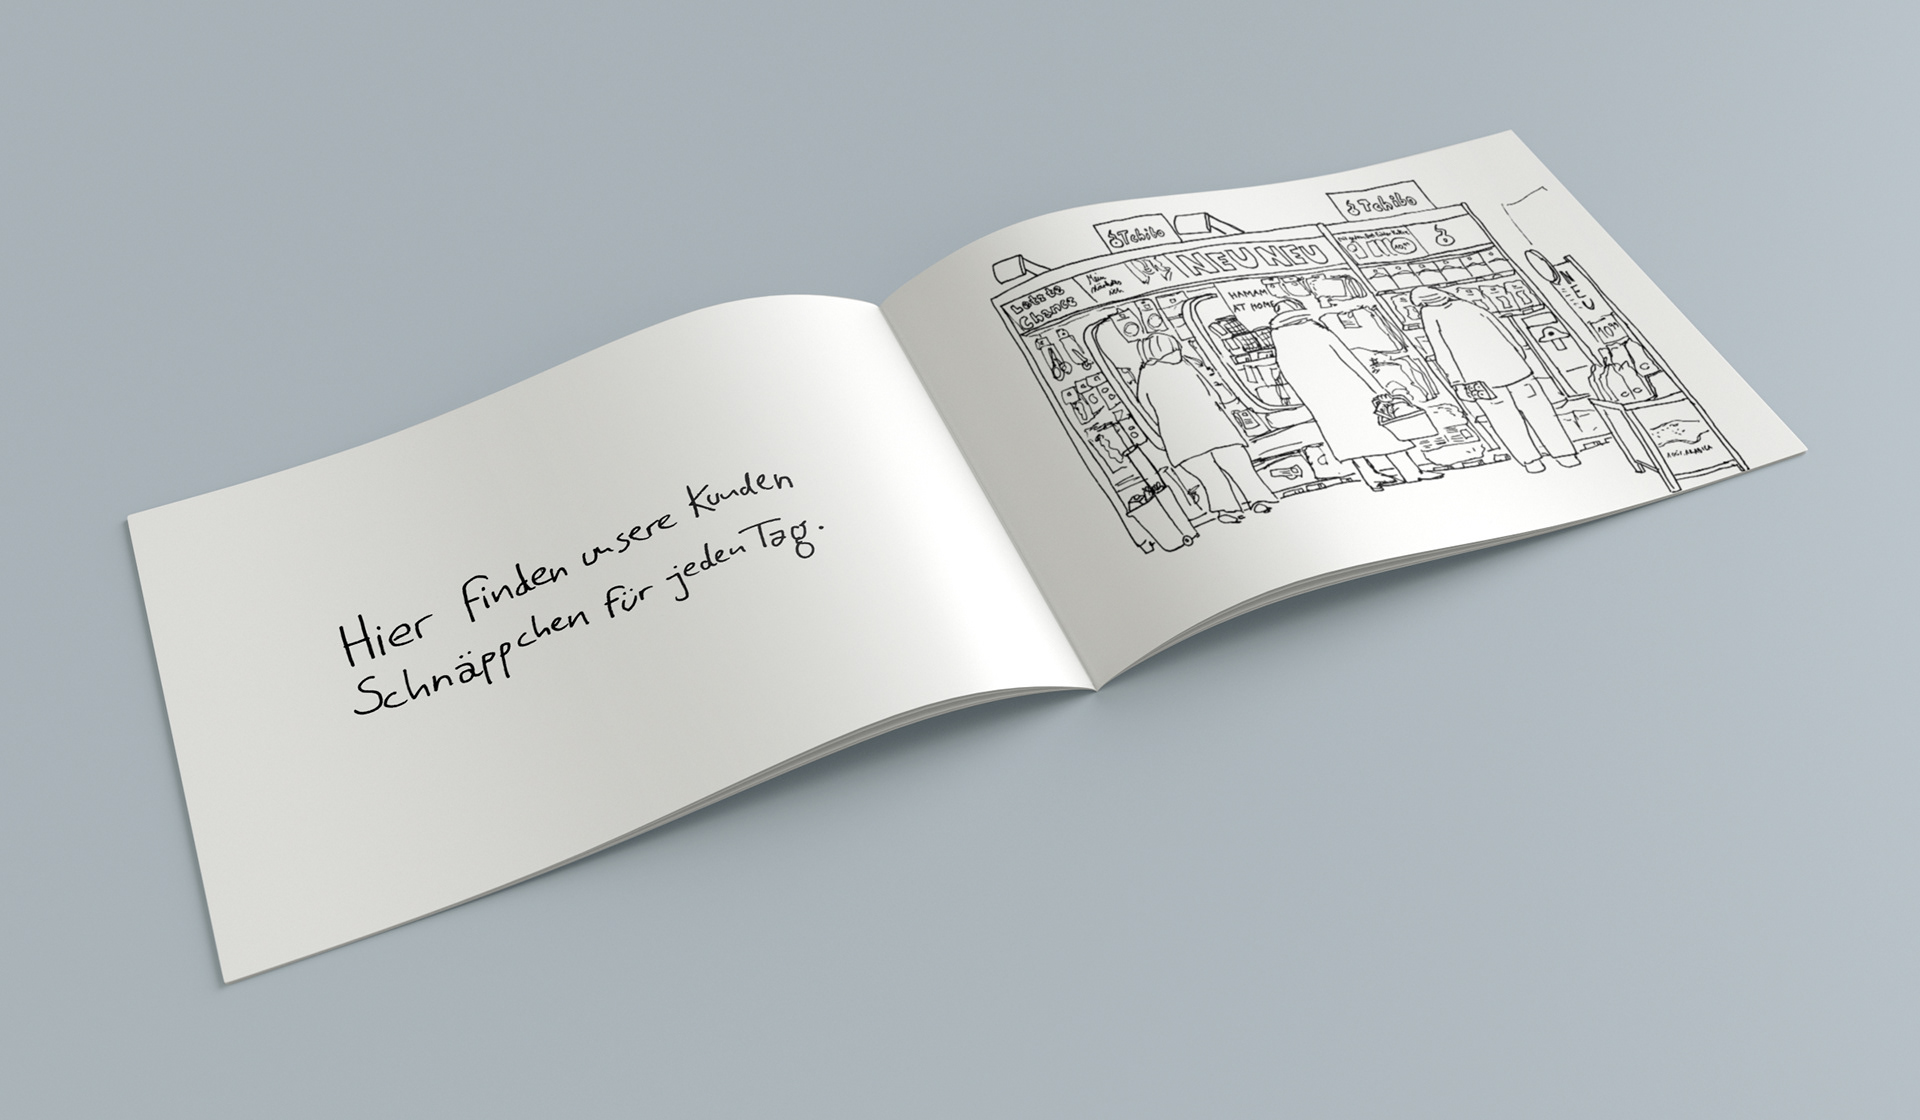 Hier finden unsere Kunden
Schnäppchen für jeden Tag.
Tchibo
Tchibo
Letzte
Chance
NEU NEU
HAMAM
AT HOME
NEU
10
100% ARABICA